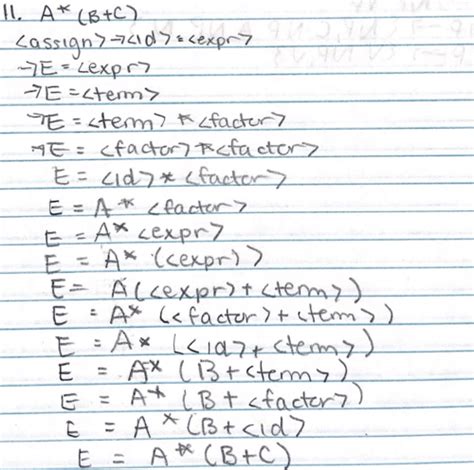 11. A* (B+C)
<assign>→<id> = <expr>
→E = <expr>
→E = <term>
→E = <term> * <factor>
→E = <factor> * <factor>
E = <id> * <factor>
E = A * <factor>
E = A* <expr>
E = A* (<expr>)
E= A(<expr> + <term>)
E = A* (<factor> + <term>)
E = A* (<id> + <term>)
E = A* (B + <term>)
E = A* (B + <factor>)
E = A * (B + <id>
E = A* (B+C)